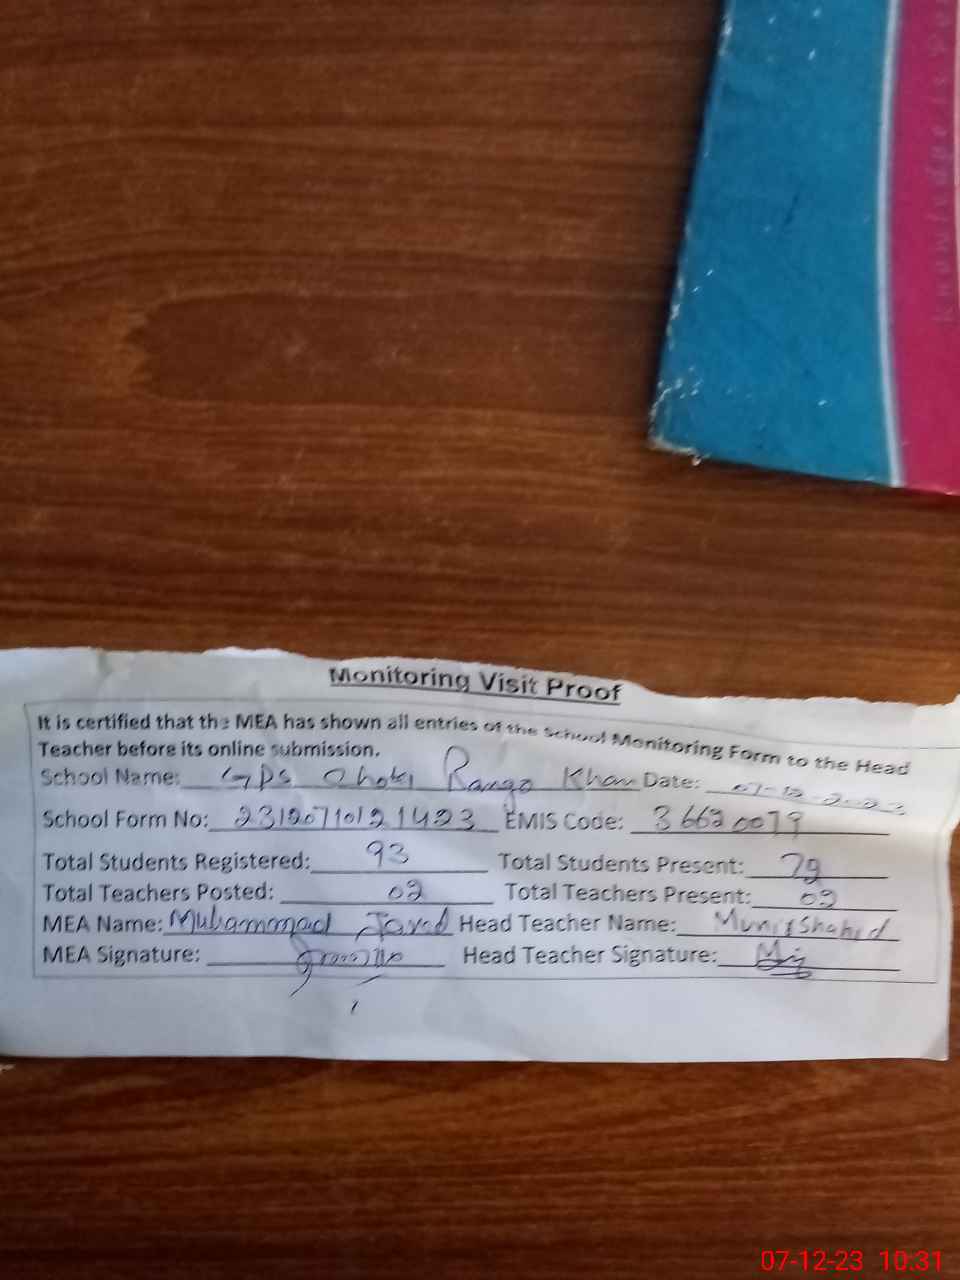 Monitoring Visit Proof
It is certified that the MEA has shown all entries of the School Monitoring Form to the Head
Teacher before its online submission.
School Name: GPS Choki Ranga Khan Date: 07-12-2023
School Form No: 23120710121423 EMIS Code: 36620079
Total Students Registered: 93 Total Students Present:
Total Teachers Posted: 02 Total Teachers Present: 02
MEA Name: Muhammad Javed Head Teacher Name: Munir Shahid
MEA Signature: Head Teacher Signature:
07-12-23 10:31